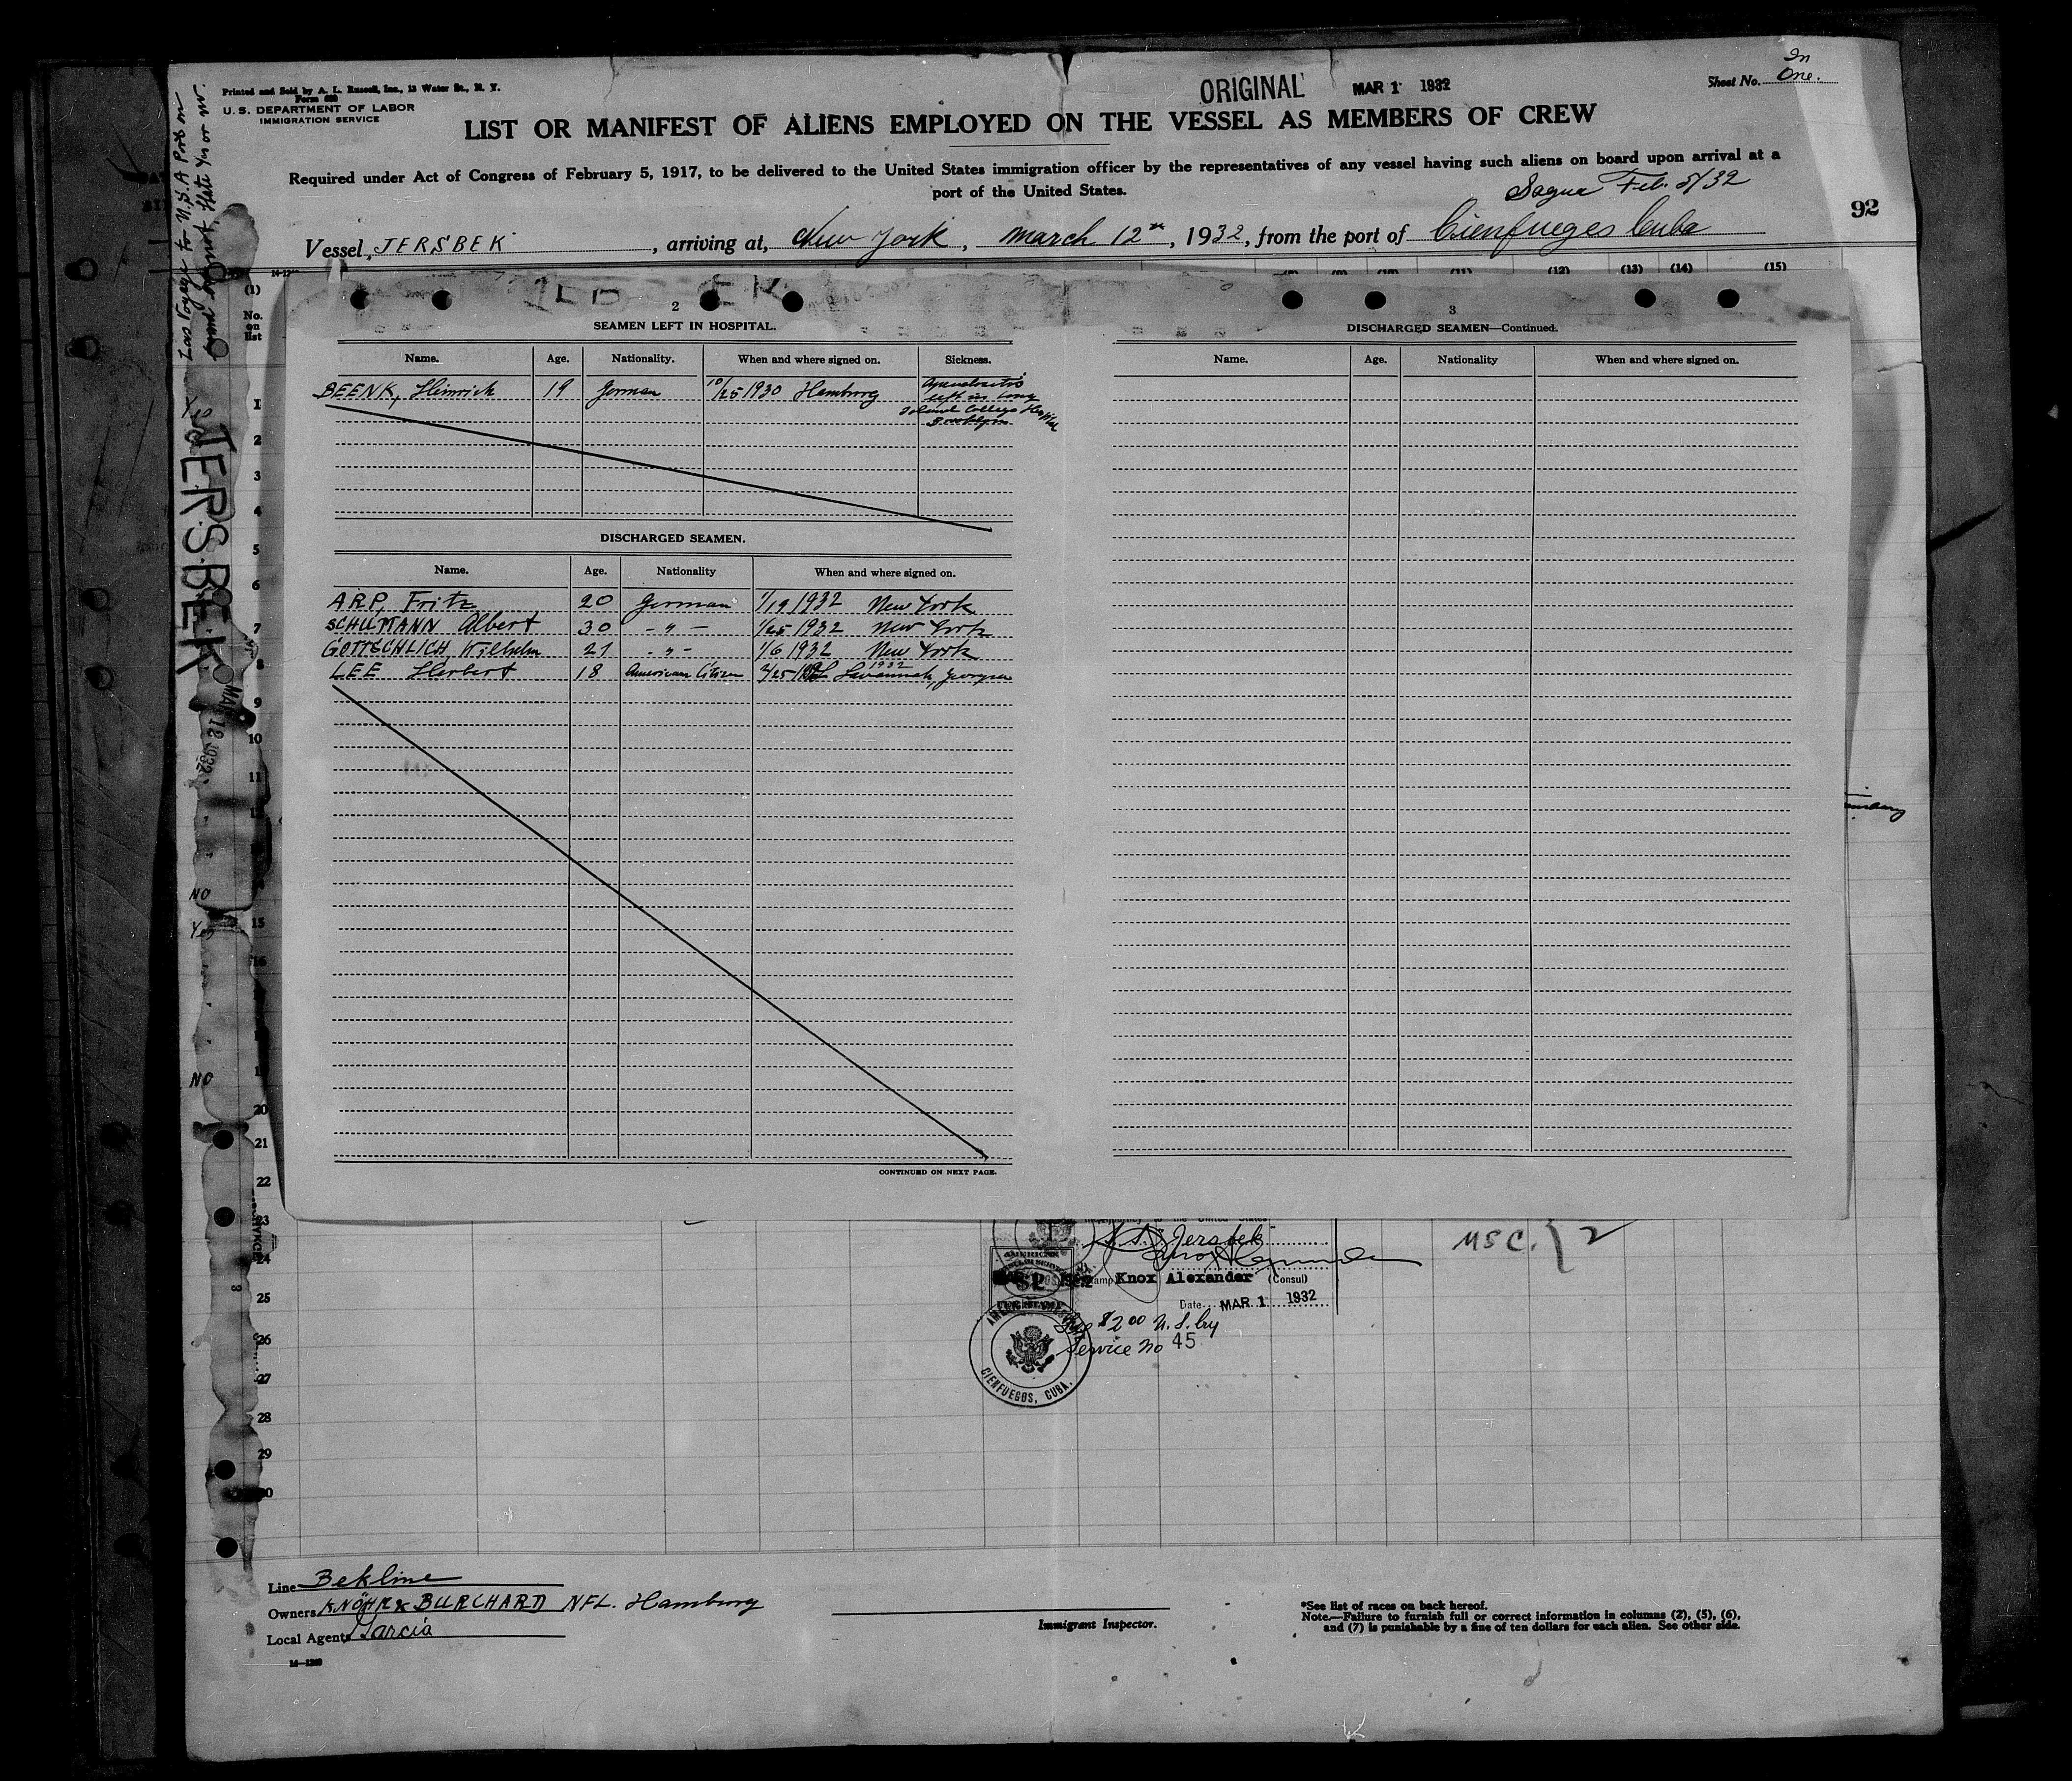 Printed and Sold by A. L. Russell, Inc., 13 Water St., N. Y.
Form 689
U. S. DEPARTMENT OF LABOR
IMMIGRATION SERVICE
ORIGINAL MAR 1 1932
Sheet No. One.
LIST OR MANIFEST OF ALIENS EMPLOYED ON THE VESSEL AS MEMBERS OF CREW
Required under Act of Congress of February 5, 1917, to be delivered to the United States immigration officer by the representatives of any vessel having such aliens on board upon arrival at a
port of the United States.
Sagua Feb. 5/32
92
Vessel JERSBEK, arriving at, New York, March 12th, 1932, from the port of Cienfueges Cuba
Last Voyage to U.S.A Port on
board or not, State Yes or no.
(12) (13) (14) (15)
(1)
No. on list
JERSBEK
2
SEAMEN LEFT IN HOSPITAL.
Name. Age. Nationality. When and where signed on. Sickness.
BEENK, Heinrich 19 German 10/25 1930 Hamburg
left in Long
Island College Hospital
Brooklyn
DISCHARGED SEAMEN.
Name. Age. Nationality When and where signed on.
ARP, Fritz 20 German 1/19 1932 New York
SCHUMANN Albert 30 - " - 1/25 1932 New York
GOTTSCHLICH, Wilhelm 21 - " - 1/6 1932 New York
LEE Herbert 18 American Citizen 2/25 1932 Savannah, Georgia
CONTINUED ON NEXT PAGE.
3
DISCHARGED SEAMEN—Continued.
Name. Age. Nationality When and where signed on.
1
2
3
4
5
6
7
8
9
10
11
15
16
20
21
22
23
24
25
26
27
28
29
30
NO
Yes
NO
S.S. "Jersbek"
Knox Alexander (Consul)
Date MAR 1 1932
Fee $2.00 U.S. Cy
Service No 45
AMERICAN
CIENFUEGOS, CUBA.
MSC. } 2
Line Bekline
Owners KNÖHR & BURCHARD NFL. Hamburg
Local Agents Garcia
14—1240
Immigrant Inspector.
*See list of races on back hereof.
Note.—Failure to furnish full or correct information in columns (2), (5), (6),
and (7) is punishable by a fine of ten dollars for each alien. See other side.